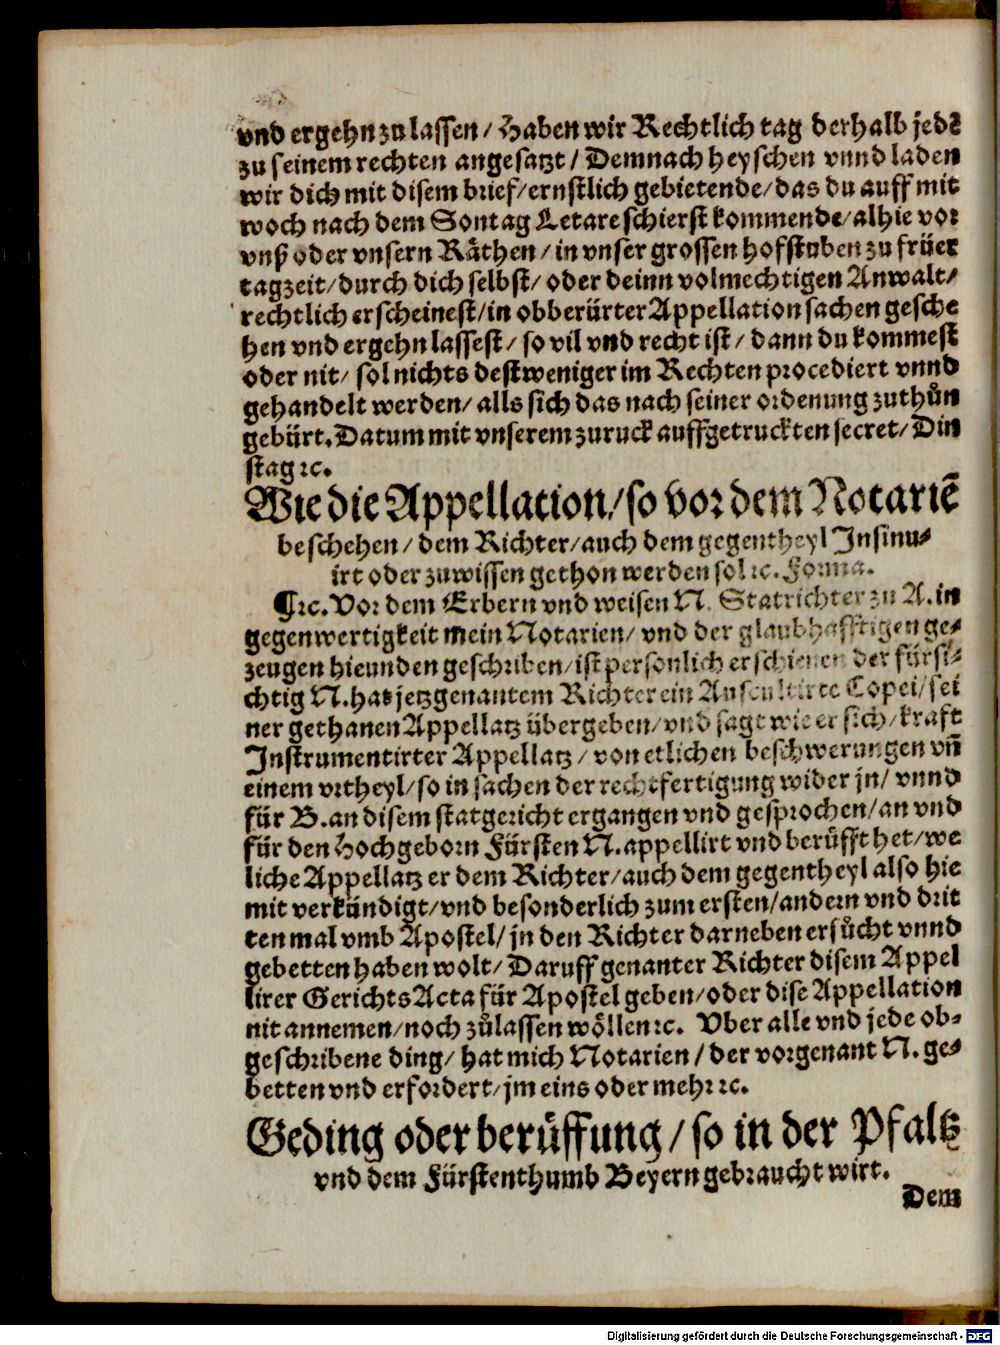 vnd ergehn zu lassen / Haben wir Rechtlich tag derhalb jedẽ
zu seinem rechten angesatzt / Demnach heyschen vnnd laden
wir dich mit disem brief / ernstlich gebietende / das du auff mit
woch nach dem Sontag Letare schierst kommende / alhie vor
vnß oder vnsern Räthen / in vnser grossen hofstuben zu früer
tagzeit / durch dich selbst / oder deinn volmechtigen Anwalt /
rechtlich erscheinest / in obberürter Appellation sachen gesche
hen vnd ergehn lassest / so vil vnd recht ist / dann du kommest
oder nit / sol nichts destweniger im Rechten procediert vnnd
gehandelt werden / alls sich das nach seiner ordenung zuthůn
gebürt. Datum mit vnserem zuruck auffgetruckten secret / Din
stag ꝛc.
Wie die Appellation / so vor dem Notariẽ
beschehen / dem Richter / auch dem gegentheyl Insinu⸗
irt oder zuwissen gethon werden sol ꝛc. Forma.
¶ ꝛc. Vor dem Erbern vnd weisen N. Statrichter zu A. in
gegenwertigkeit mein Notarien / vnd der glaubhafftigen ge⸗
zeugen hieunden geschriben / ist personlich erschienen der fürsi⸗
chtig N. hat jetzgenantem Richter ein Auscultirte Copei / sei
ner gethanen Appellatz übergeben / vnd sagt wie er sich / kraft
Instrumentirter Appellatz / von etlichen beschwerungen vñ
einem vrtheyl / so in sachen der rechtfertigung wider jn / vnnd
für B. an disem statgericht ergangen vnd gesprochen / an vnd
für den Hochgeborn Fürsten N. appellirt vnd berüfft het / we
liche Appellatz er dem Richter / auch dem gegentheyl also hie
mit verkündigt / vnd besonderlich zum ersten / andern vnd drit
ten mal vmb Apostel / jn den Richter darneben ersůcht vnnd
gebetten haben wolt / Daruff genanter Richter disem Appel
lirer Gerichts Acta für Apostel geben / oder dise Appellation
nit annemen / noch zůlassen wöllen ꝛc. Vber alle vnd jede ob⸗
geschribene ding / hat mich Notarien / der vorgenant N. ge⸗
betten vnd erfordert / jm eins oder mehr ꝛc.
Geding oder berüffung / so in der Pfaltz
vnd dem Fürstenthumb Beyern gebraucht wirt.
Dem
Digitalisierung gefördert durch die Deutsche Forschungsgemeinschaft - DFG